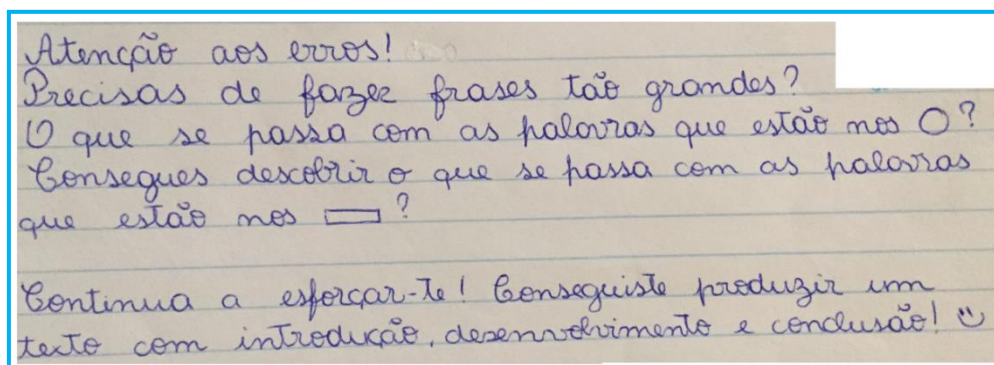 Atenção aos erros!
Precisas de fazer frases tão grandes?
O que se passa com as palavras que estão nos O?
Consegues descobrir o que se passa com as palavras
que estão nos ▭?
Continua a esforçar-te! Conseguiste produzir um
texto com introdução, desenvolvimento e conclusão! ☺